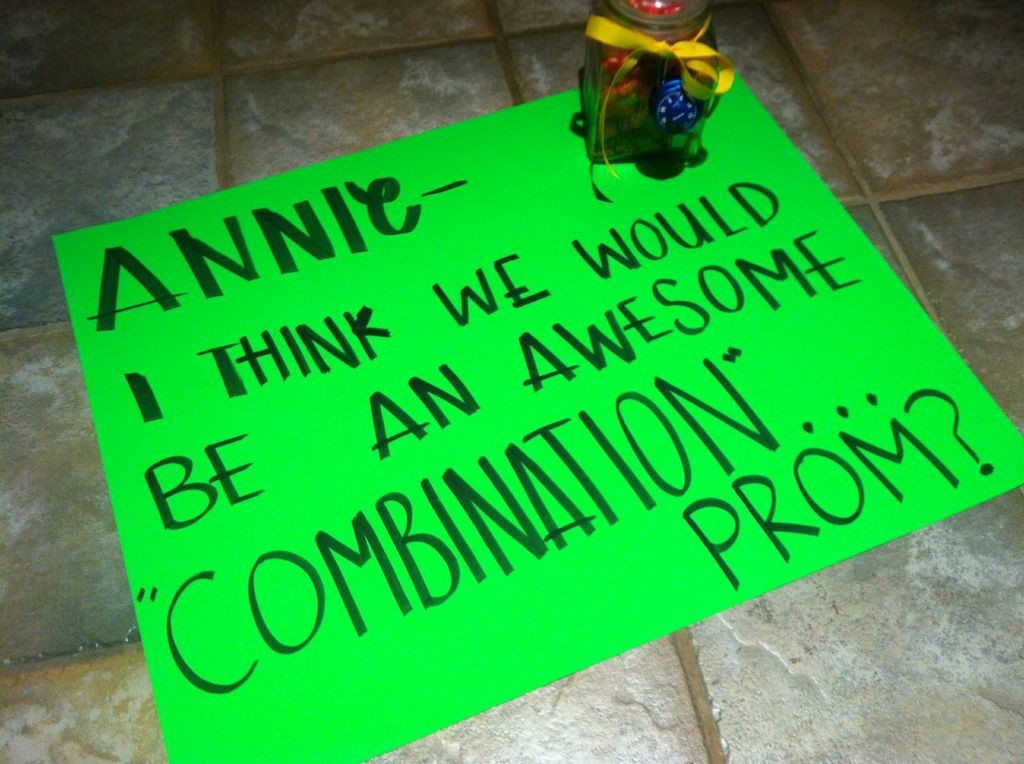 ANNIE-
I THINK WE WOULD
BE AN AWESOME
"COMBINATION"...
PROM?